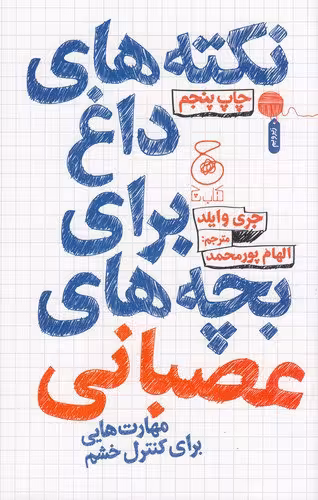 نکته‌های
چاپ پنجم
داغ
کتاب چ
جری وایلد
برای
مترجم:
الهام پورمحمد
بچه‌های
عصبانی
مهارت‌هایی
برای کنترل خشم